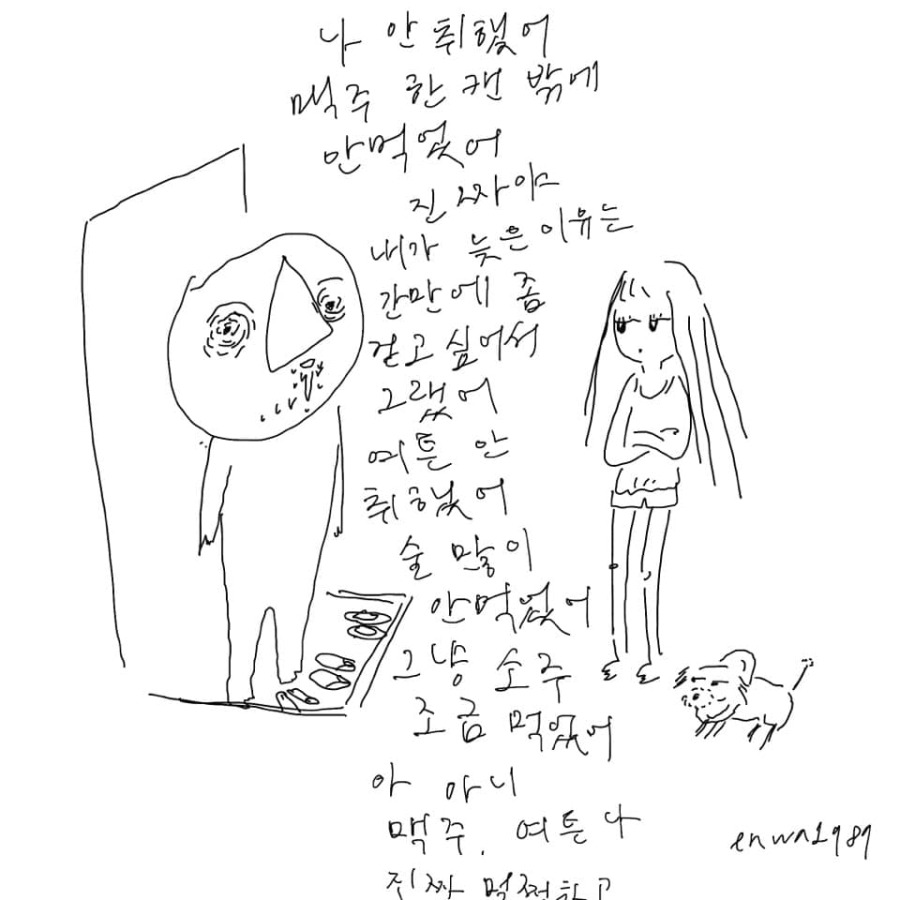 나 안취했어
맥주 한캔 밖에
안먹었어
진짜야
내가 늦은이유는
간만에 좀
걷고싶어서
그랬어
여튼 안
취했어
술 많이
안먹었어
그냥 소주
조금 먹었어
아 아니
맥주. 여튼나
진짜 멀쩡하고
enwn1989